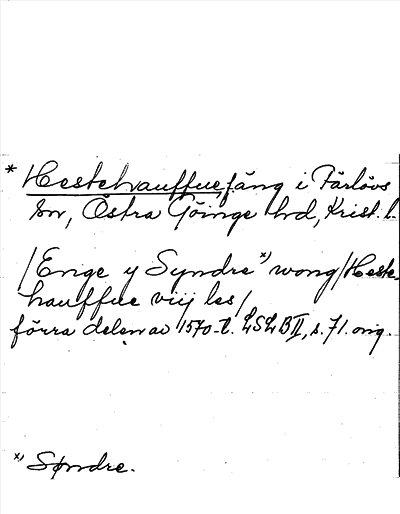 * Hestehauffue, fäng i Färlövs
sn, Östra Göinge hd, Krist. l.
/Enge y Syndre x) wong/Heste-
hauffue viij les/
förra delen av 1570-t. LSLB II, s. 71. orig.
x) Søndre.